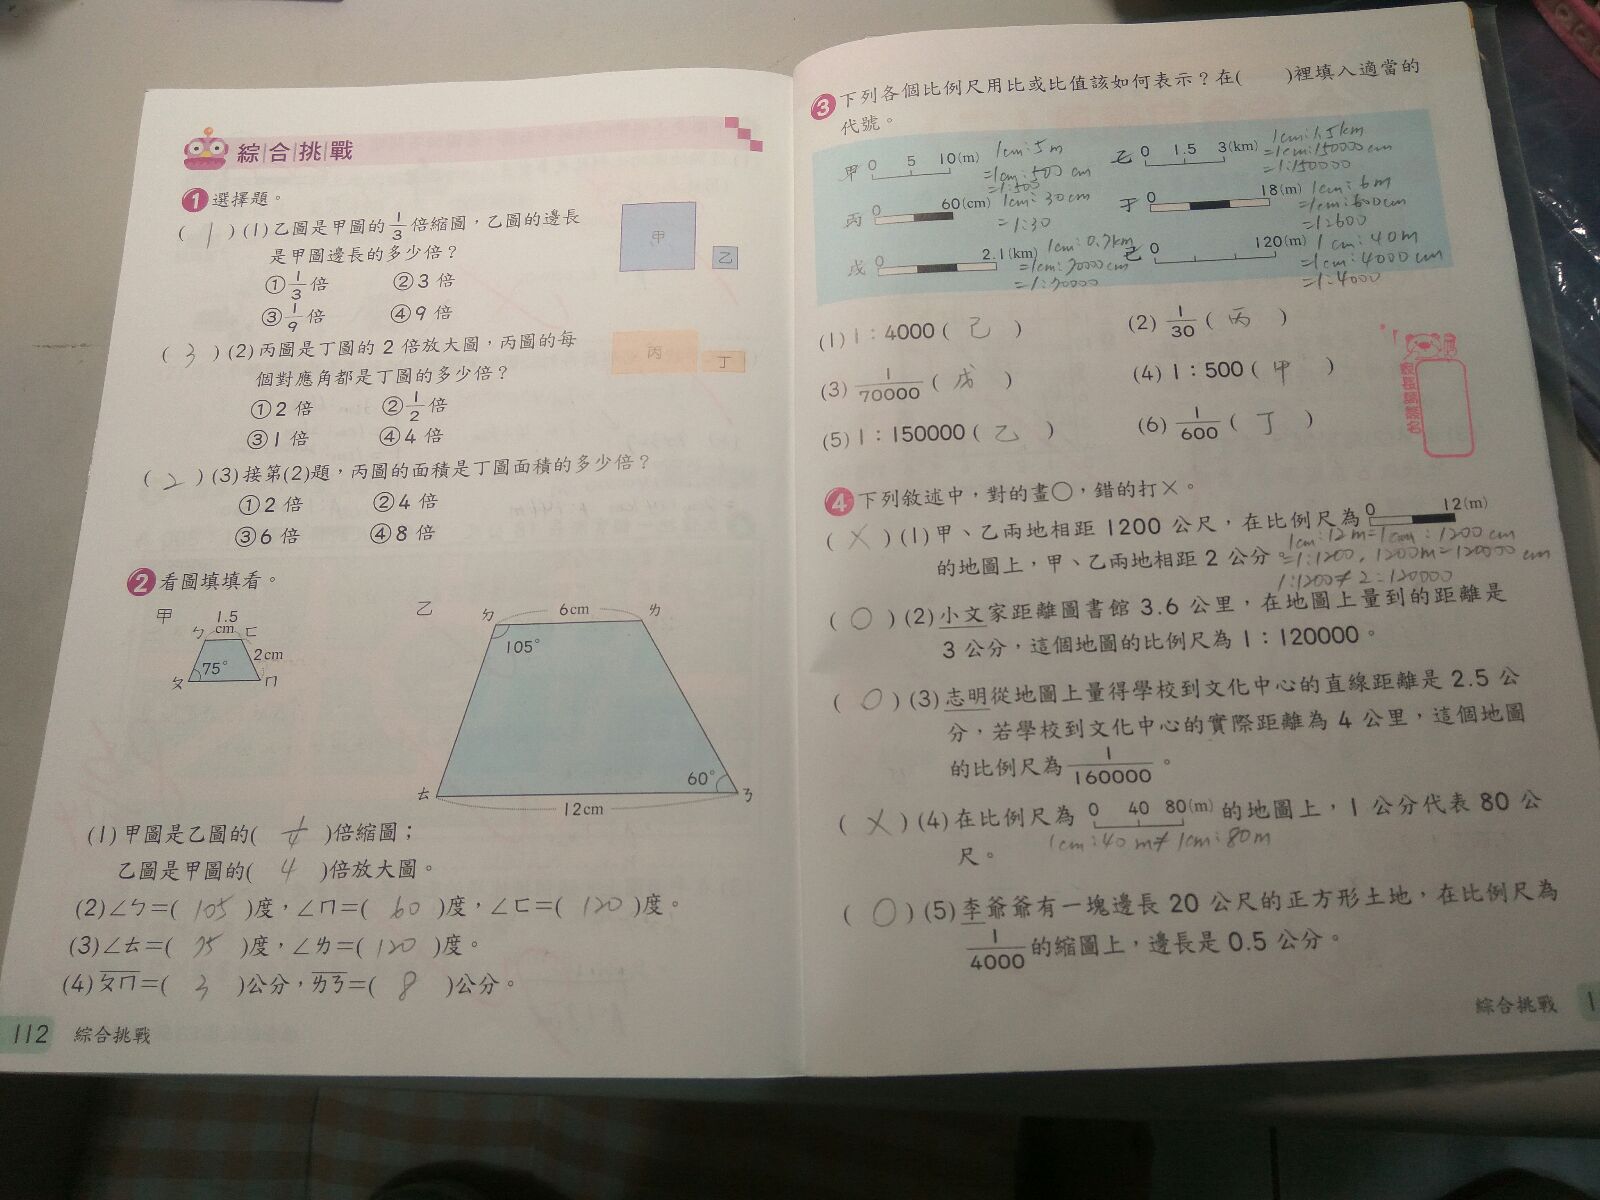 綜合挑戰
1 選擇題。
( 1 )(1)乙圖是甲圖的1/3倍縮圖，乙圖的邊長
是甲圖邊長的多少倍？
①1/3倍 ②3倍
③1/9倍 ④9倍
甲
乙
( 3 )(2)丙圖是丁圖的2倍放大圖，丙圖的每
個對應角都是丁圖的多少倍？
①2倍 ②1/2倍
③1倍 ④4倍
丙
丁
( 2 )(3)接第(2)題，丙圖的面積是丁圖面積的多少倍？
①2倍 ②4倍
③6倍 ④8倍
2 看圖填填看。
甲 1.5 cm ㄅ ㄈ 2cm 75° ㄆ ㄇ
乙 ㄉ 6cm ㄌ 105° 60° ㄊ 12cm ㄋ
(1)甲圖是乙圖的( 1/4 )倍縮圖；
乙圖是甲圖的( 4 )倍放大圖。
(2)∠ㄅ=( 105 )度，∠ㄇ=( 60 )度，∠ㄈ=( 120 )度。
(3)∠ㄊ=( 75 )度，∠ㄌ=( 120 )度。
(4)ㄆㄇ=( 3 )公分，ㄌㄋ=( 8 )公分。
112 綜合挑戰
3 下列各個比例尺用比或比值該如何表示？在( )裡填入適當的
代號。
甲 0 5 10(m) 1cm:5m
=1cm:500cm
=1:500
乙 0 1.5 3(km) 1cm:1.5km
=1cm:150000cm
=1:150000
丙 0 60(cm) 1cm:30cm
=1:30
丁 0 18(m) 1cm:6m
=1cm:600cm
=1:600
戊 0 2.1(km) 1cm:0.7km
=1cm:70000cm
=1:70000
己 0 120(m) 1cm:40m
=1cm:4000cm
=1:4000
(1)1：4000( 己 ) (2)1/30( 丙 )
(3)1/70000( 戊 ) (4)1：500( 甲 )
(5)1：150000( 乙 ) (6)1/600( 丁 )
4 下列敘述中，對的畫○，錯的打×。
( × )(1)甲、乙兩地相距1200公尺，在比例尺為 0 12(m)
的地圖上，甲、乙兩地相距2公分。
1cm:12m=1cm:1200cm
=1:1200, 1200m=120000cm
1:1200≠2:120000
( ○ )(2)小文家距離圖書館3.6公里，在地圖上量到的距離是
3公分，這個地圖的比例尺為1：120000。
( ○ )(3)志明從地圖上量得學校到文化中心的直線距離是2.5公
分，若學校到文化中心的實際距離為4公里，這個地圖
的比例尺為1/160000。
( × )(4)在比例尺為 0 40 80(m) 的地圖上，1公分代表80公
尺。
1cm:40m≠1cm:80m
( ○ )(5)李爺爺有一塊邊長20公尺的正方形土地，在比例尺為
1/4000的縮圖上，邊長是0.5公分。
綜合挑戰